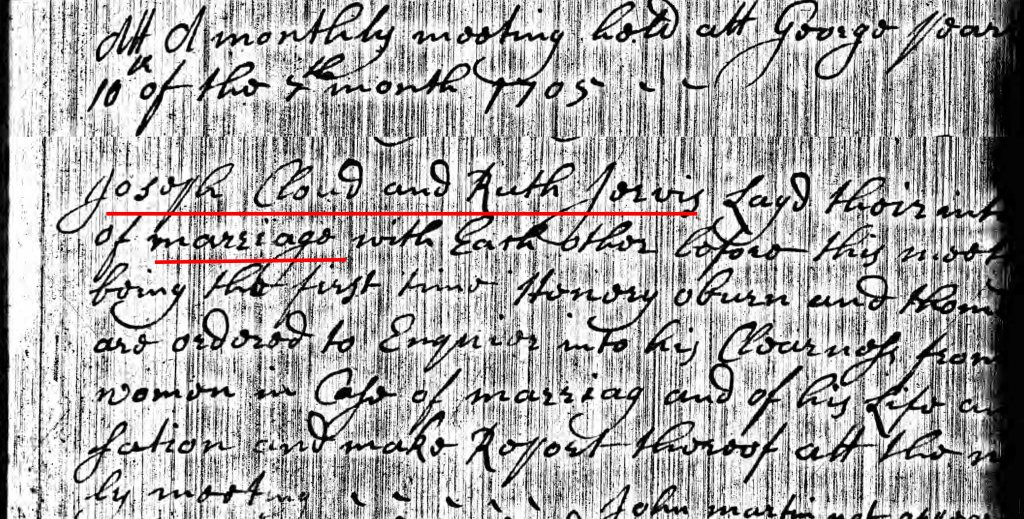 Att A monthly meeting held att George Pear
10th of the 7th month 1705
Joseph Cloud and Ruth Jervis Layd their int
of marriage with Each other before this meet
being the first time Henery oburn and thom
are ordered to Enquier into his Clearness from
women in Case of marriag and of his Life an
sation and make Report thereof att the n
ly meeting
John martin not appear